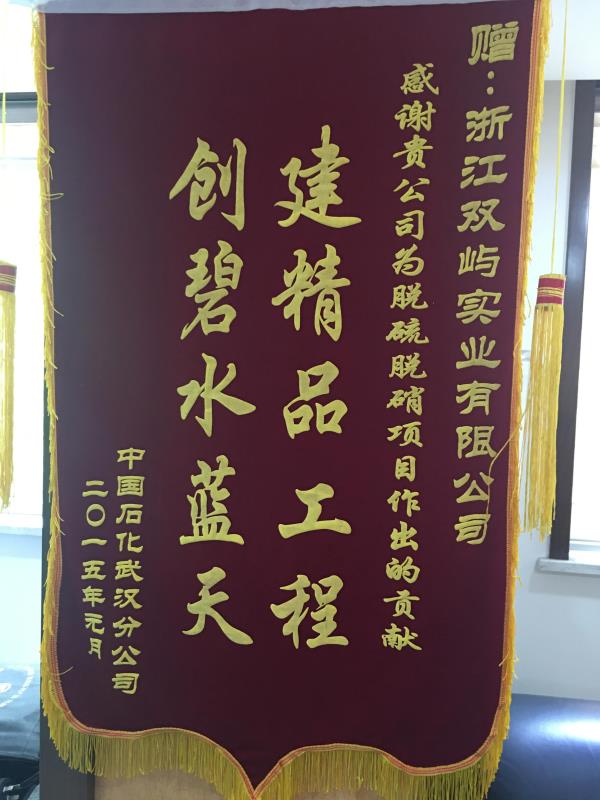 赠：浙江双屿实业有限公司
感谢贵公司为脱硫脱硝项目作出的贡献
建精品工程
创碧水蓝天
中国石化武汉分公司
二〇一五年元月